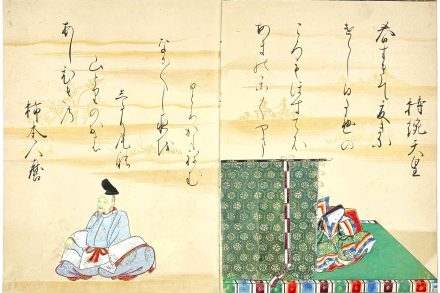 持統天皇
春すきて夏来に
けらし白妙の
ころもほすてふ
あまのかくやま
柿本人麿
あしひきの
山とりのおの
したり尾の
なか〳〵し夜を
ひとりかもねむ